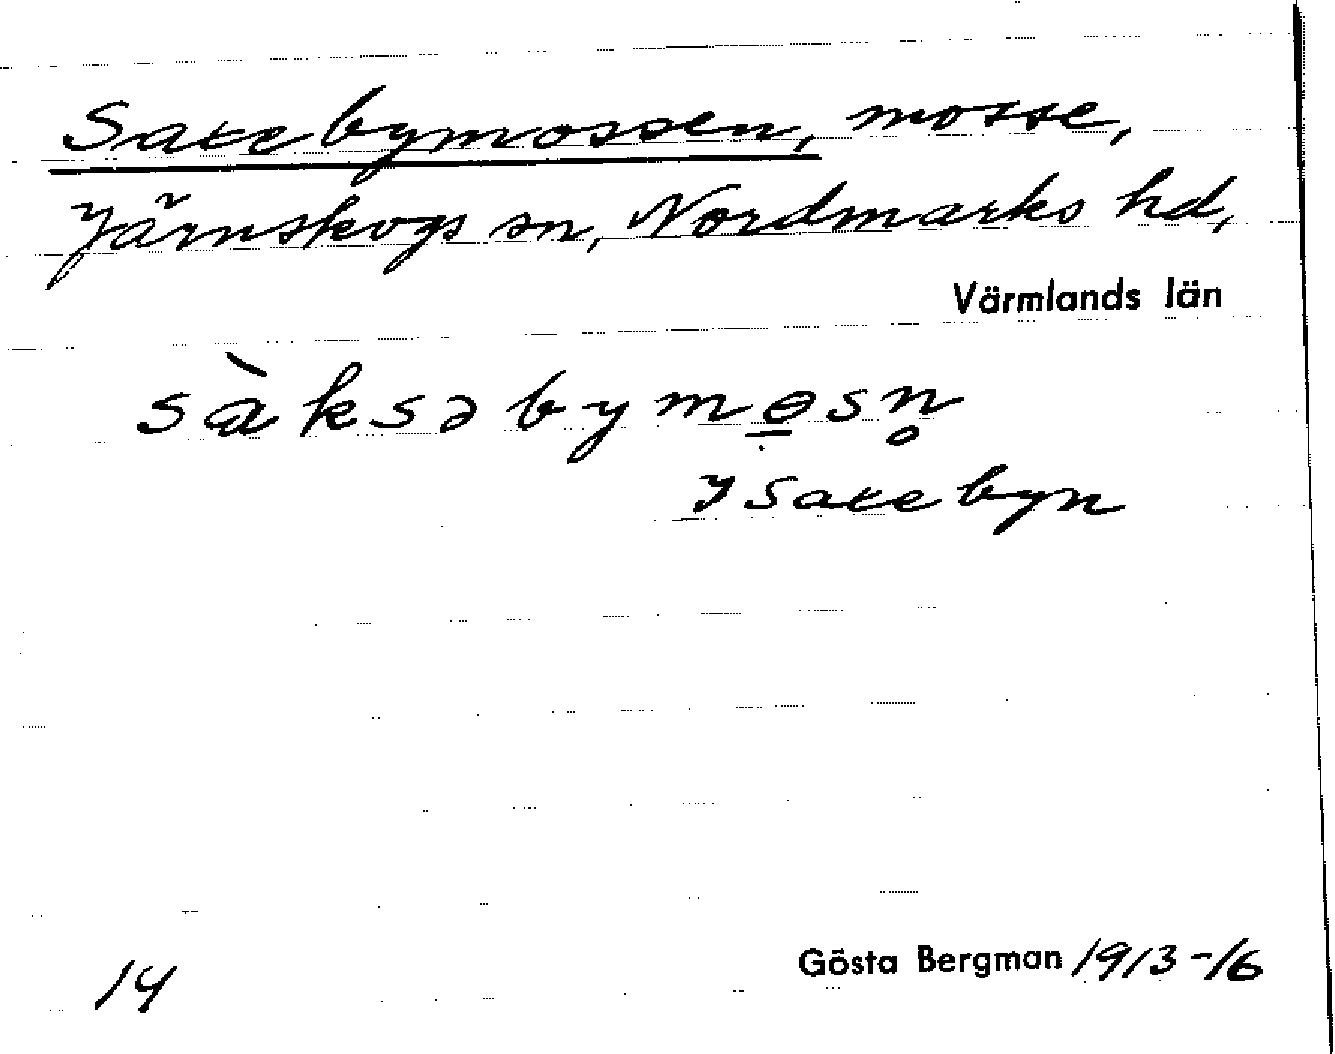 Saxebymossen, mosse,
Järnskogs sn, Nordmarks hd,
Värmlands län
sàksəbymɵ̱sn̥
I Saxebyn
14
Gösta Bergman 1913-16